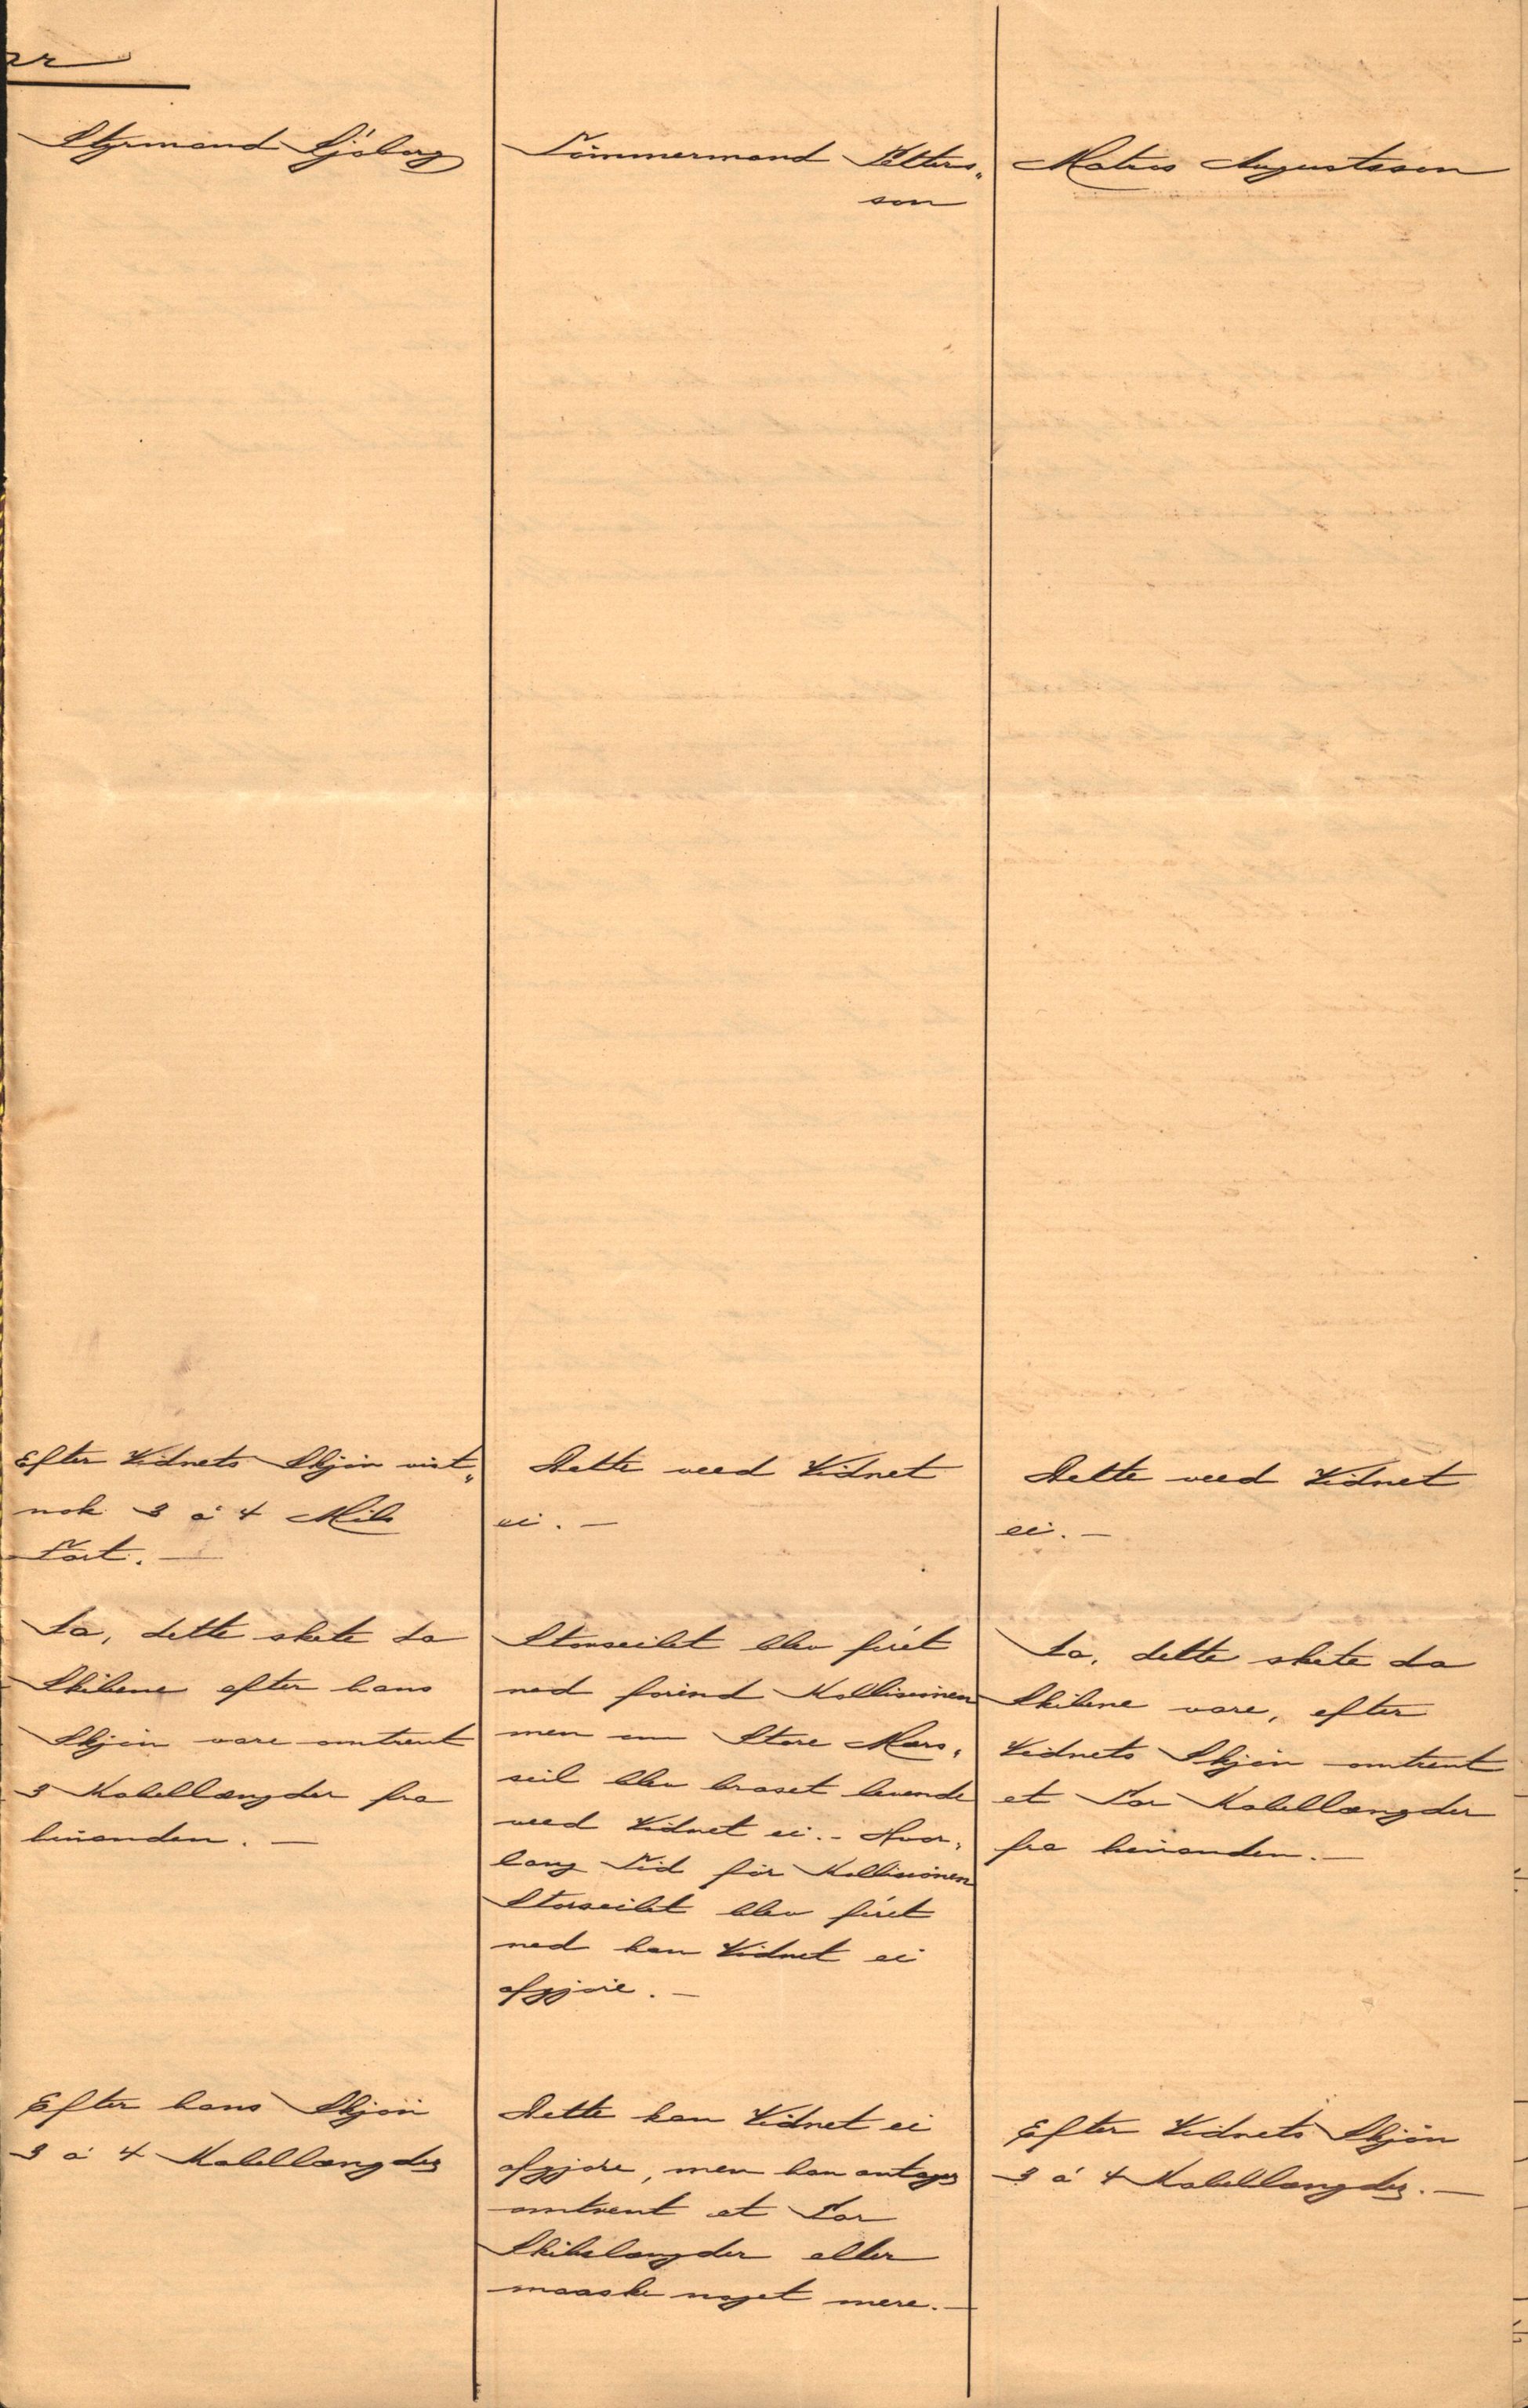 Styrmand Sjöberg
Efter Vidnets Skjøn vist„
nok 3 á 4 Mils
Fart. —
Ja, dette skete da
Skibene efter hans
Skjøn vare omtrent
3 Kabellængder fra
hinanden. —
Efter hans Skjøn
3 á 4 Kabellængder
Tömmermand Petters„
son
Dette veed Vidnet
ei. —
Storseilet blev firet
ned forind Kollisionen
men om Store Mers„
seil blev braset levende
veed Vidnet ei. - Hvor„
lang Tid før Kollisionen
Storseilet blev firet
ned kan Vidnet ei
afgjøre. —
Dette kan Vidnet ei
afgjøre, men han antager
omtrent et Par
Skibslængder eller
maaske noget mere. —
Matros Augustsson
Dette veed Vidnet
ei. —
Ja, dette skete da
Skibene vare, efter
Vidnets Skjøn omtrent
et Par Kabellængder
fra hinanden. —
Efter Vidnets Skjøn
3 á 4 Kabellængder. —